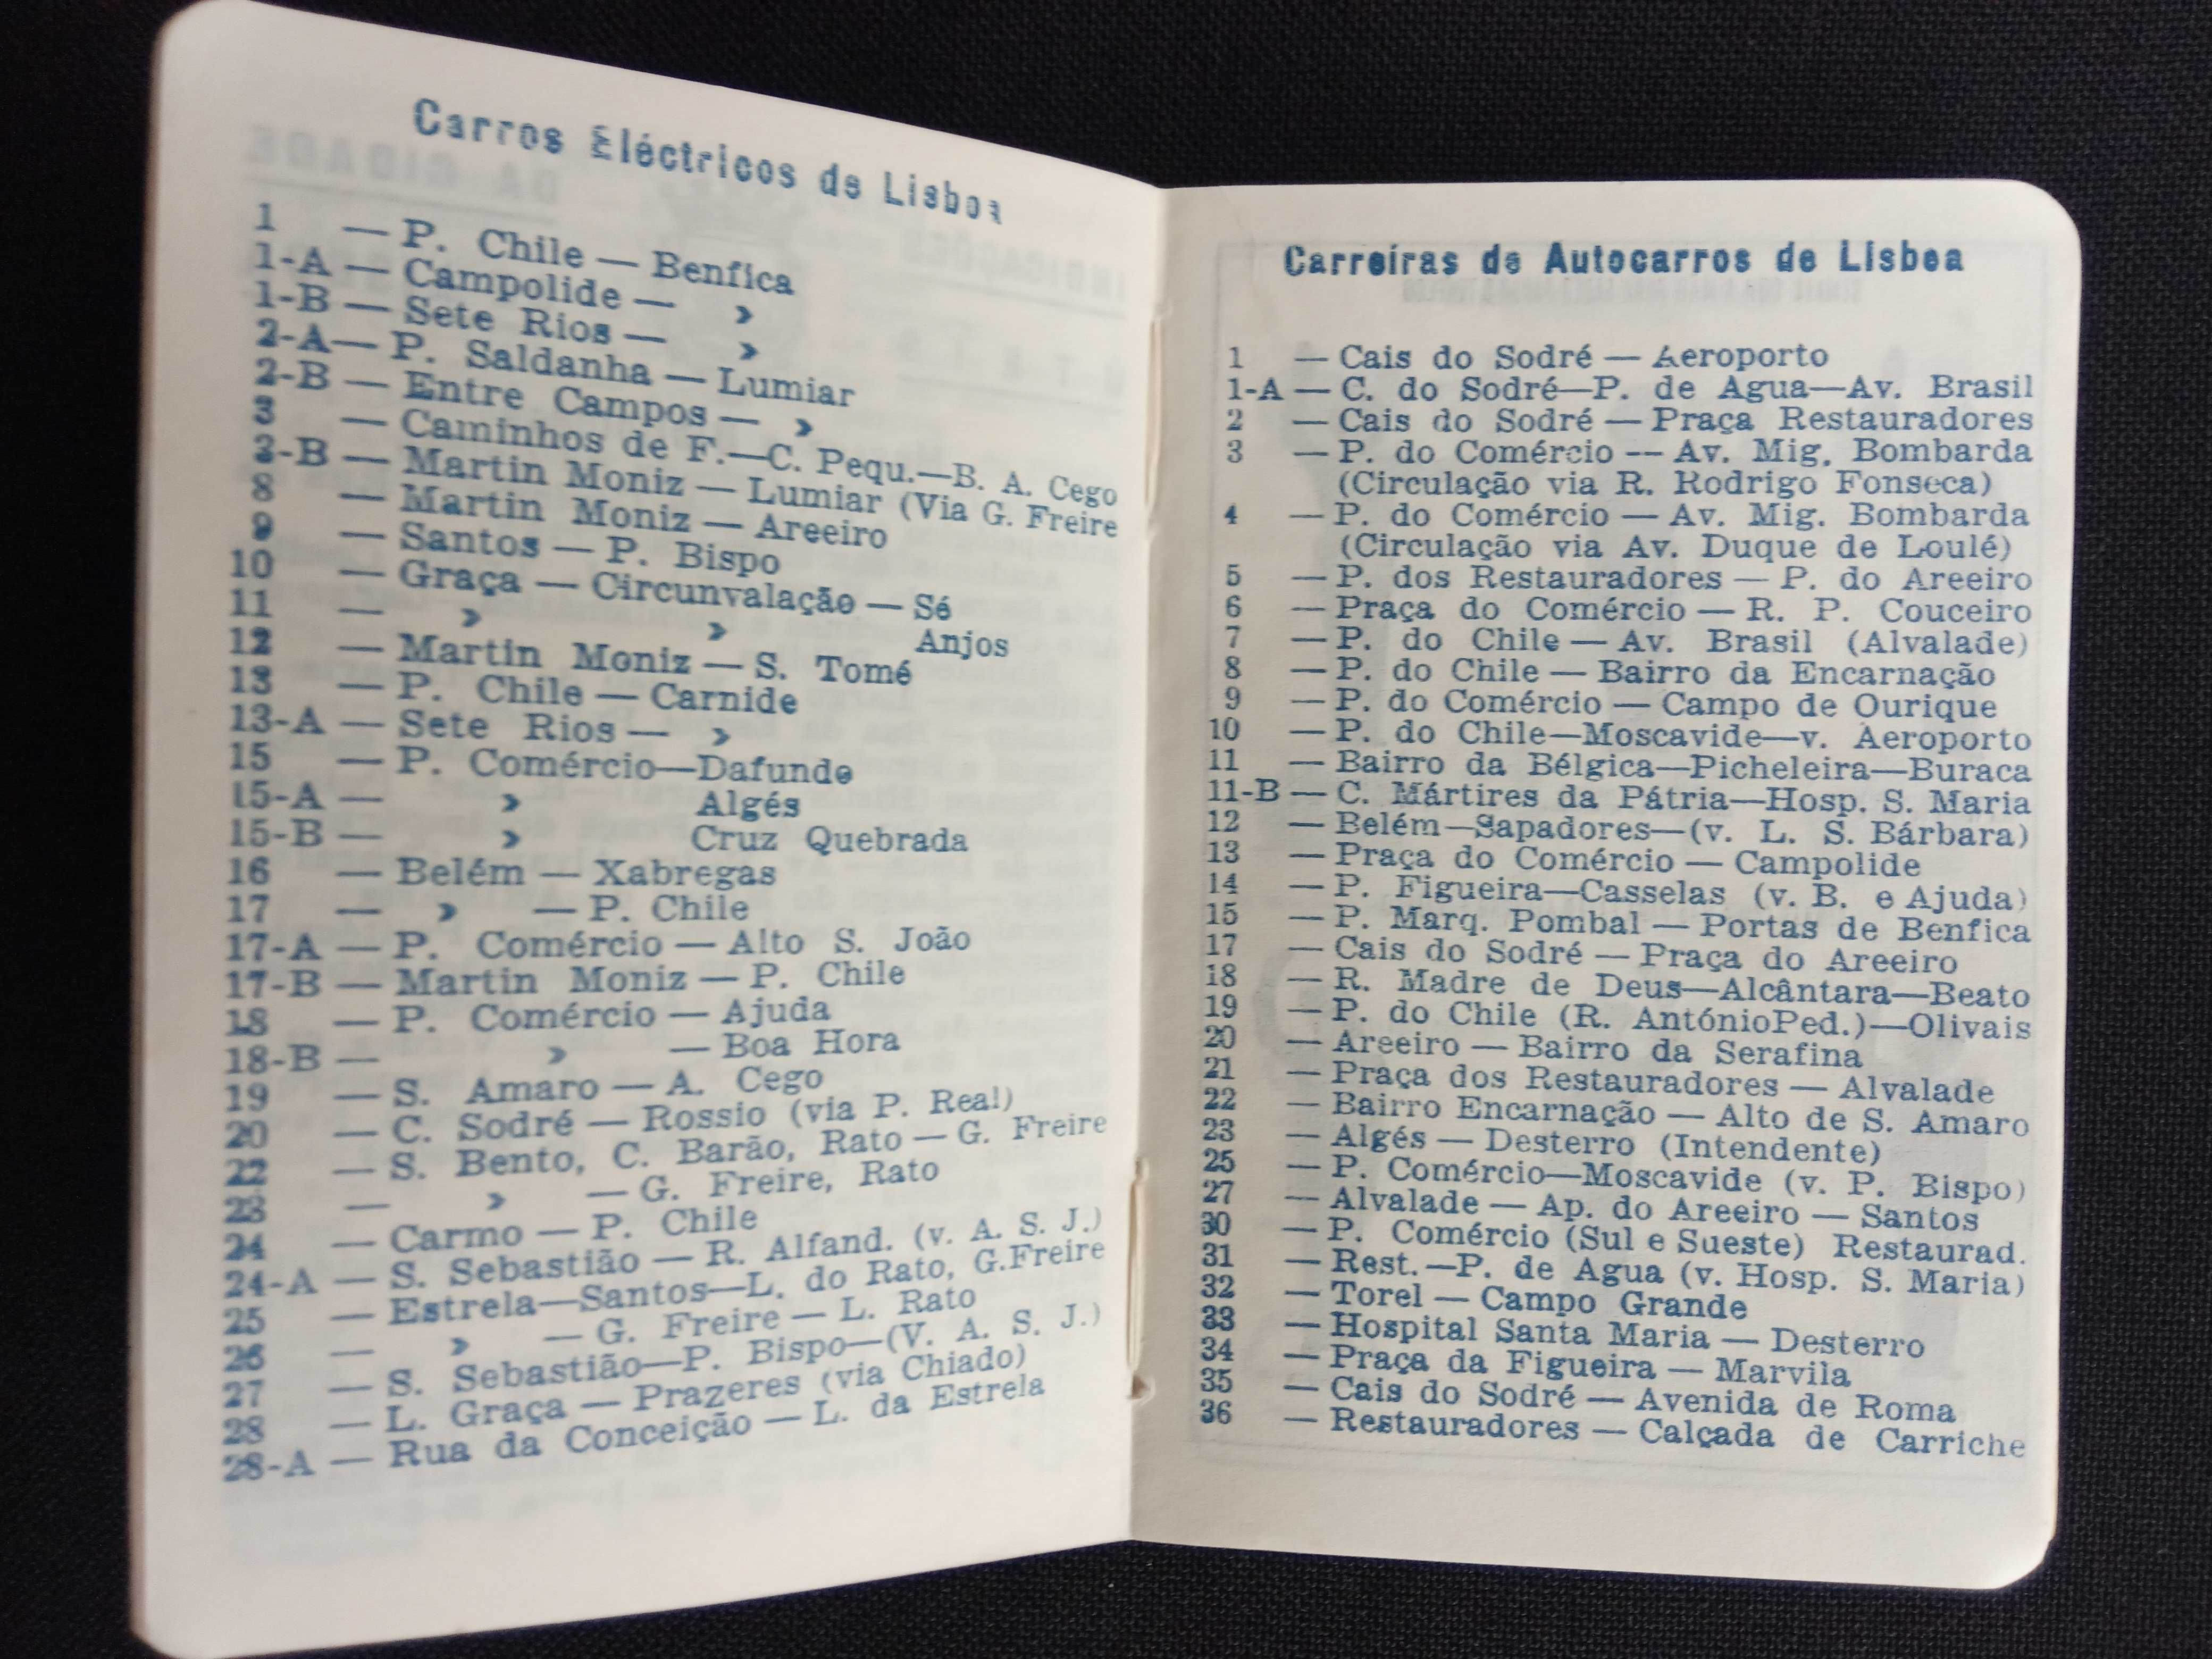 Carros Eléctricos de Lisboa
1 — P. Chile — Benfica
1-A — Campolide — »
1-B — Sete Rios — »
2-A — P. Saldanha — Lumiar
2-B — Entre Campos — »
3 — Caminhos de F.—C. Pequ.—B. A. Cego
3-B — Martin Moniz — Lumiar (Via G. Freire
8 — Martin Moniz — Areeiro
9 — Santos — P. Bispo
10 — Graça — Circunvalação — Sé
11 — » » Anjos
12 — Martin Moniz — S. Tomé
13 — P. Chile — Carnide
13-A — Sete Rios — »
15 — P. Comércio—Dafundo
15-A — » Algés
15-B — » Cruz Quebrada
16 — Belém — Xabregas
17 — » — P. Chile
17-A — P. Comércio — Alto S. João
17-B — Martin Moniz — P. Chile
18 — P. Comércio — Ajuda
18-B — » — Boa Hora
19 — S. Amaro — A. Cego
20 — C. Sodré — Rossio (via P. Real)
22 — S. Bento, C. Barão, Rato — G. Freire
23 — » — G. Freire, Rato
24 — Carmo — P. Chile
24-A — S. Sebastião — R. Alfand. (v. A. S. J.)
25 — Estrela—Santos—L. do Rato, G.Freire
26 — » — G. Freire — L. Rato
27 — S. Sebastião—P. Bispo—(V. A. S. J.)
28 — L. Graça — Prazeres (via Chiado)
28-A — Rua da Conceição — L. da Estrela
Carreiras de Autocarros de Lisboa
1 — Cais do Sodré — Aeroporto
1-A — C. do Sodré—P. de Agua—Av. Brasil
2 — Cais do Sodré — Praça Restauradores
3 — P. do Comércio — Av. Mig. Bombarda
(Circulação via R. Rodrigo Fonseca)
4 — P. do Comércio — Av. Mig. Bombarda
(Circulação via Av. Duque de Loulé)
5 — P. dos Restauradores — P. do Areeiro
6 — Praça do Comércio — R. P. Couceiro
7 — P. do Chile — Av. Brasil (Alvalade)
8 — P. do Chile — Bairro da Encarnação
9 — P. do Comércio — Campo de Ourique
10 — P. do Chile—Moscavide—v. Aeroporto
11 — Bairro da Bélgica—Picheleira—Buraca
11-B — C. Mártires da Pátria—Hosp. S. Maria
12 — Belém—Sapadores—(v. L. S. Bárbara)
13 — Praça do Comércio — Campolide
14 — P. Figueira—Casselas (v. B. e Ajuda)
15 — P. Marq. Pombal — Portas de Benfica
17 — Cais do Sodré — Praça do Areeiro
18 — R. Madre de Deus—Alcântara—Beato
19 — P. do Chile (R. AntónioPed.)—Olivais
20 — Areeiro — Bairro da Serafina
21 — Praça dos Restauradores — Alvalade
22 — Bairro Encarnação — Alto de S. Amaro
23 — Algés — Desterro (Intendente)
25 — P. Comércio—Moscavide (v. P. Bispo)
27 — Alvalade — Ap. do Areeiro — Santos
30 — P. Comércio (Sul e Sueste) Restaurad.
31 — Rest.—P. de Agua (v. Hosp. S. Maria)
32 — Torel — Campo Grande
33 — Hospital Santa Maria — Desterro
34 — Praça da Figueira — Marvila
35 — Cais do Sodré — Avenida de Roma
36 — Restauradores — Calçada de Carriche